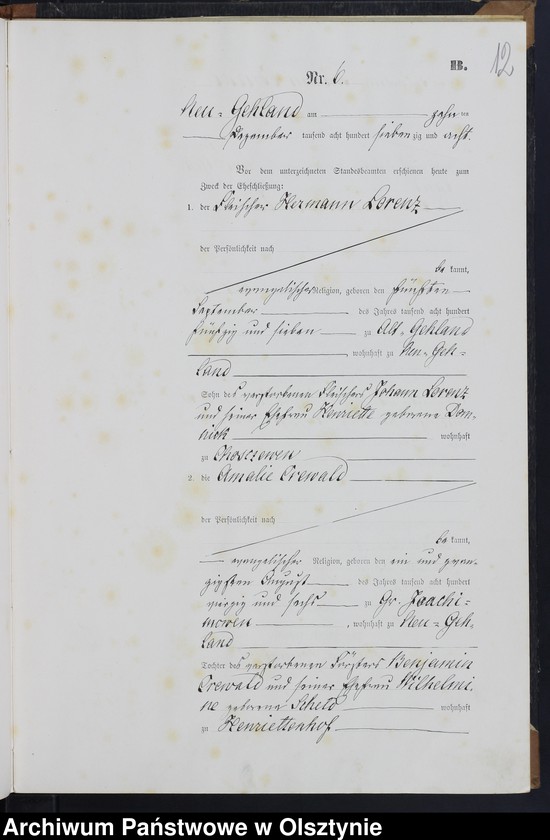 12
B.
Nr. 6.
Neu-Gehland am zehnten
Dezember tausend acht hundert siebenzig und acht.
Vor dem unterzeichneten Standesbeamten erschienen heute zum
Zweck der Eheschließung:
1. der Fleischer Hermann Lorenz
der Persönlichkeit nach
bekannt,
evangelischer Religion, geboren den fünften
September des Jahres tausend acht hundert
fünfzig und sieben zu Alt-Gehland
, wohnhaft zu Neu-Geh-
land
Sohn des verstorbenen Fleischers Johann Lorenz
und seiner Ehefrau Henriette geborene Dom-
nick wohnhaft
zu Choszewen
2. die Amalie Crewald
der Persönlichkeit nach
bekannt,
evangelischer Religion, geboren den ein und zwan-
zigsten August des Jahres tausend acht hundert
vierzig und sechs zu Gr. Joachi-
mowen , wohnhaft zu Neu-Geh-
land
Tochter des verstorbenen Försters Benjamin
Crewald und seiner Ehefrau Wilhelmi-
ne geborene wohnhaft
zu Henriettenhof
Archiwum Państwowe w Olsztynie